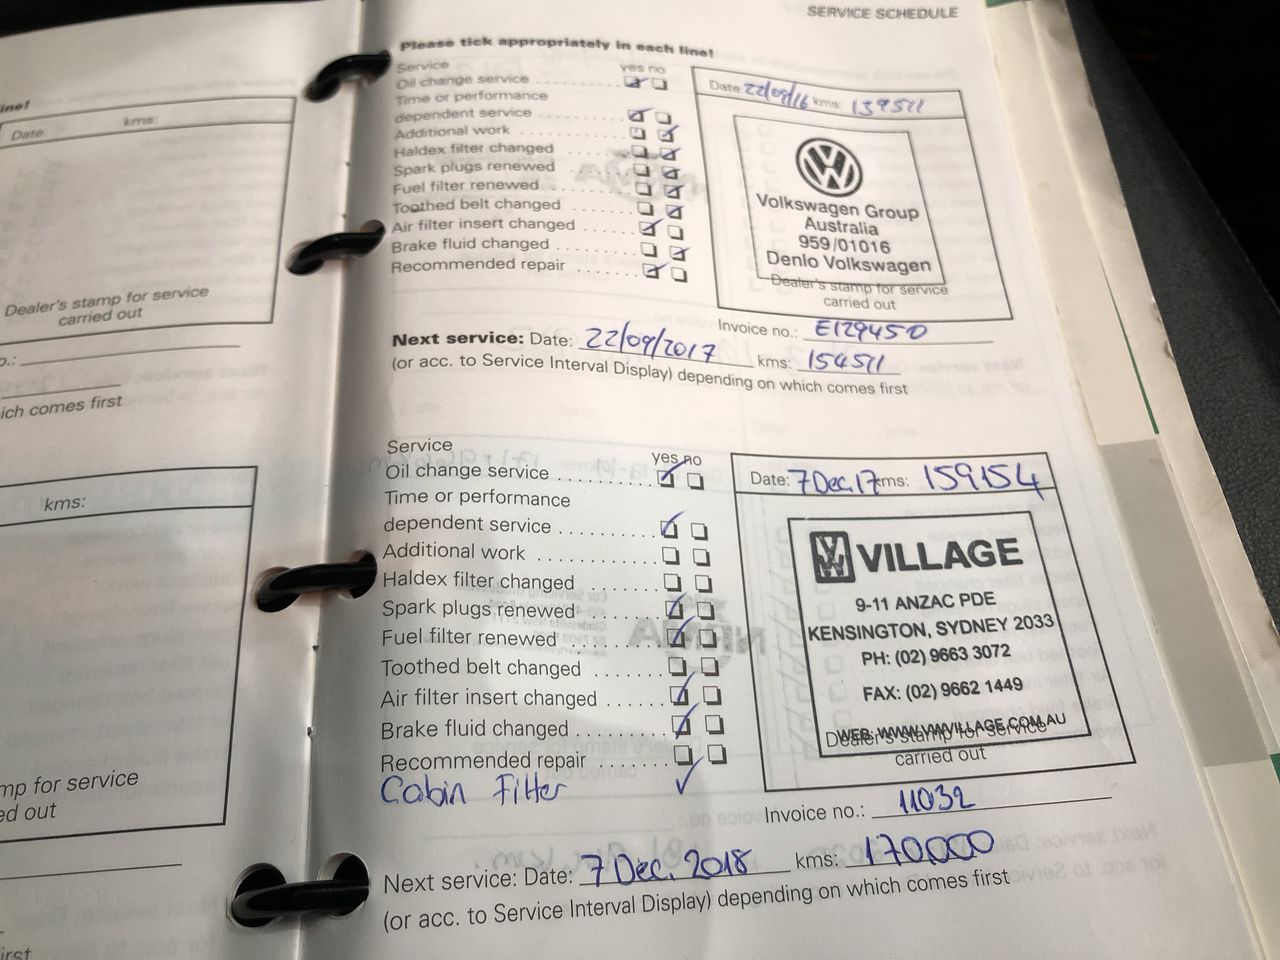 SERVICE SCHEDULE
Please tick appropriately in each line!
Service yes no
Oil change service
Time or performance
dependent service
Additional work
Haldex filter changed
Spark plugs renewed
Fuel filter renewed
Toothed belt changed
Air filter insert changed
Brake fluid changed
Recommended repair
Date: 22/09/16 kms: 139511
Volkswagen Group
Australia
959/01016
Denlo Volkswagen
Dealer's stamp for service
carried out
Invoice no.: E129450
Next service: Date: 22/09/2017 kms: 154511
(or acc. to Service Interval Display) depending on which comes first
Service yes no
Oil change service
Time or performance
dependent service
Additional work
Haldex filter changed
Spark plugs renewed
Fuel filter renewed
Toothed belt changed
Air filter insert changed
Brake fluid changed
Recommended repair
Cabin Filter
Date: 7 Dec. 17 kms: 159154
VW VILLAGE
9-11 ANZAC PDE
KENSINGTON, SYDNEY 2033
PH: (02) 9663 3072
FAX: (02) 9662 1449
WEB: WWW.VWVILLAGE.COM.AU
Dealer's stamp for service
carried out
Invoice no.: 11032
Next service: Date: 7 Dec. 2018 kms: 170,000
(or acc. to Service Interval Display) depending on which comes first
ine!
Date: kms:
Dealer's stamp for service
carried out
o.:
ich comes first
kms:
mp for service
ed out
irst